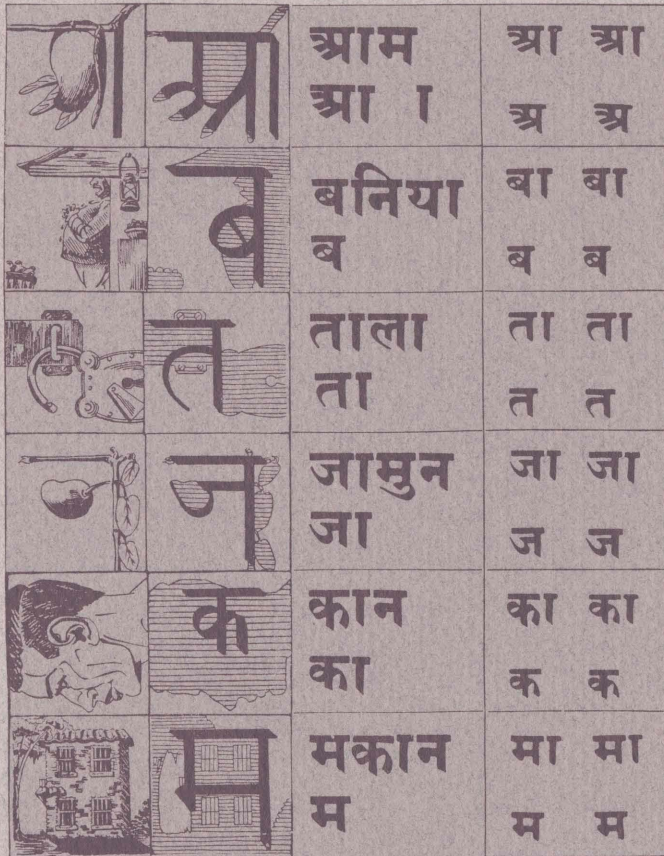 आ आ आम आ आ
आ ा अ अ
ब बनिया बा बा
ब ब ब
त ताला ता ता
ता त त
ज जामुन जा जा
जा ज ज
क कान का का
का क क
म मकान मा मा
म म म